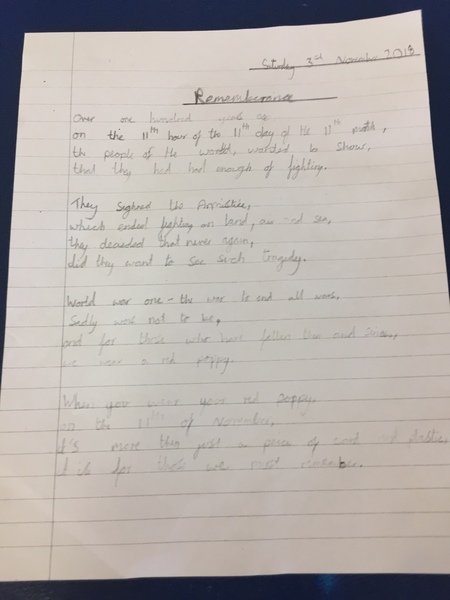 Saturday 3rd November 2018
Rememberance
Over one hundred years ago
on the 11th hour of the 11th day of the 11th month,
the people of the world, wanted to show,
that they had had enough of fighting.
They sighned the Armistice,
which ended fighting on land, and sea,
they decieded that never again,
did they want to see such tragedy.
World war one - the war to end all wars,
Sadly was not to be,
and for those who have fallen then and since,
we wear a red poppy.
When you wear your red poppy,
on the 11th of November,
it's more than just a piece of and plastic,
it is for those we must remember.